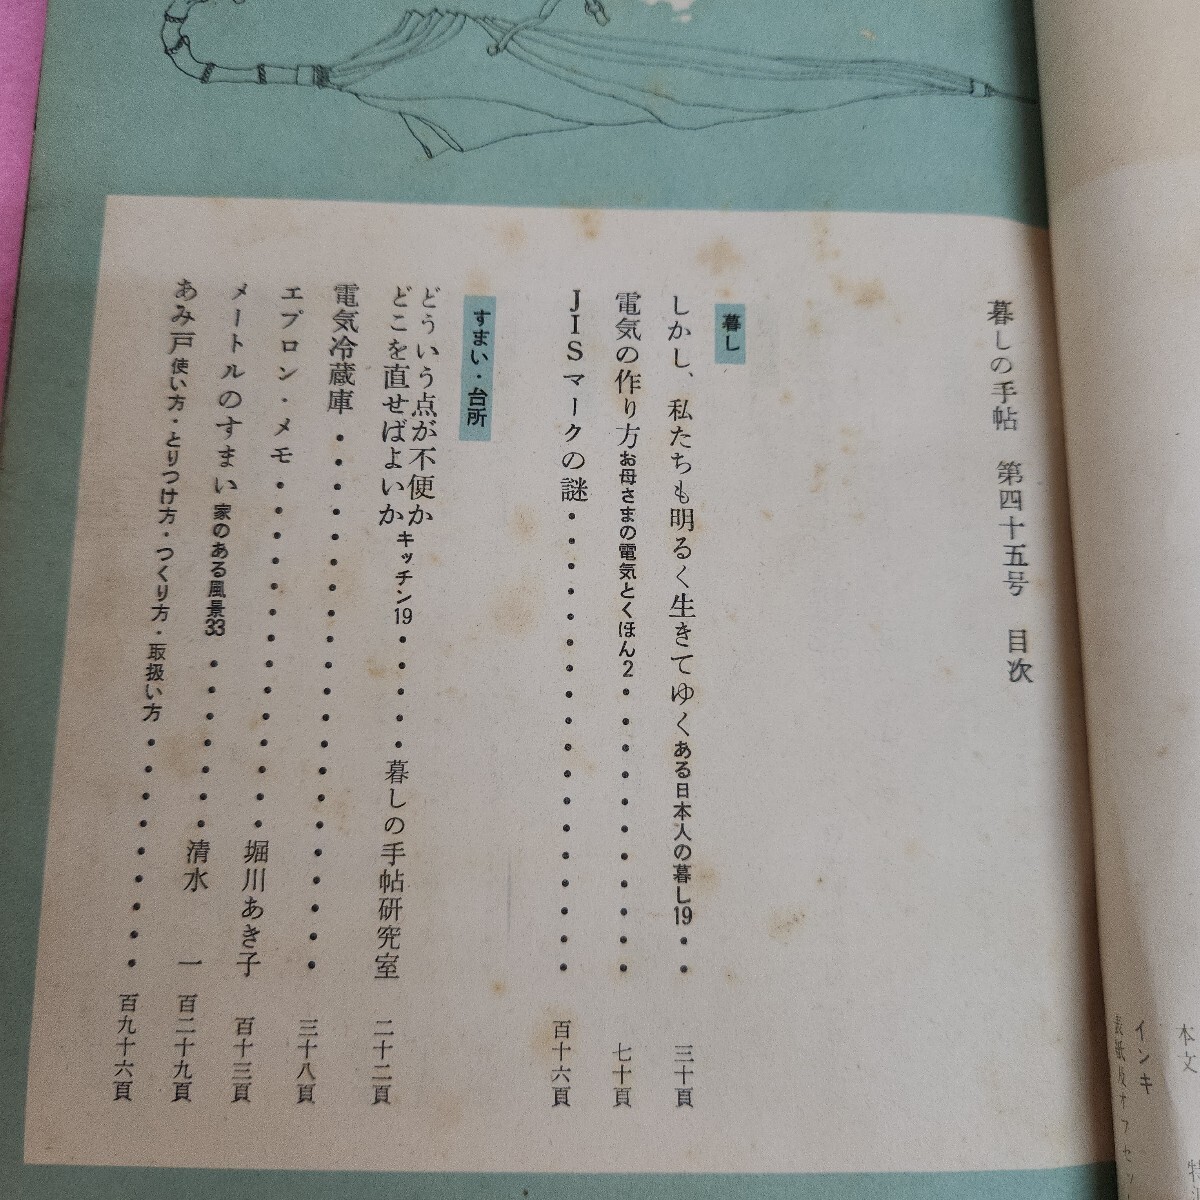 暮しの手帖 第四十五号 目次
暮し
しかし、私たちも明るく生きてゆく ある日本人の暮し19・・三十頁
電気の作り方 お母さまの電気とくほん2・・・・・・・七十頁
JISマークの謎・・・・・・・・・・・・・・・・・・百十六頁
すまい・台所
どういう点が不便か
どこを直せばよいか キッチン19・・・・・暮しの手帖研究室 二十二頁
電気冷蔵庫・・・・・・・・・・・・・・・・・・・・・三十八頁
エプロン・メモ・・・・・・・・・・・・・・堀川あき子 百十三頁
メートルのすまい 家のある風景33・・・・・・・清水 一 百二十九頁
あみ戸 使い方・とりつけ方・つくり方・取扱い方・・・・・・・・・百九十六頁
本文
インキ